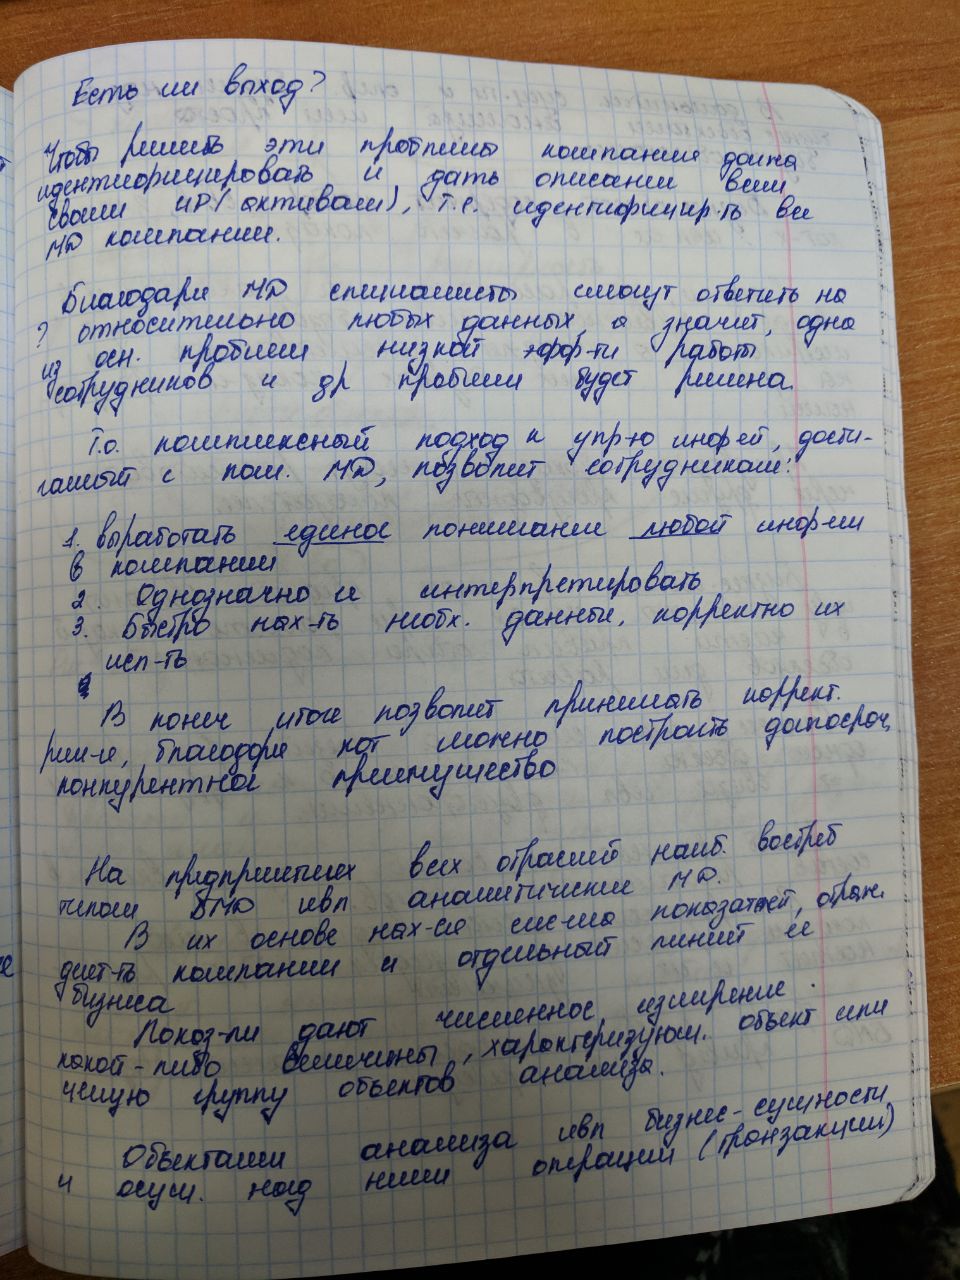 Есть ли выход?
Чтобы решить эти проблемы компания должна
идентифицировать и дать описание всем
своим ИР (активам), т.е. идентифицир-ть все
МД компании.
Благодаря МД специалисты смогут ответить на
? относительно любых данных, а значит, одна
из осн. проблем низкой эфф-ти работы
сотрудников и др проблем будет решена.
Т.о. комплексный подход к упр-ю инф-ей, дости-
гаемый с пом. МД, позволит сотрудникам:
1. выработать единое понимание любой инф-ии
в компании
2. Однозначно и интерпретировать
3. Быстро нах-ть необх. данные, корректно их
исп-ть
В конеч итоге позволит принимать коррект.
реш-е, благодаря кот можно построить долгосроч,
конкурентное преимущество
На предприятиях всех отраслей наиб. востреб
типом БМД явл аналитические МД.
В их основе нах-ся сис-ма показателей, отраж.
деят-ть компании и отдельный линий ее
бизнеса
Показ-ли дают численное измерение
какой-либо величины, характеризующ. объект или
целую группу объектов анализа.
Объектами анализа явл бизнес-сущности
и осущ. над ними операции (транзакции)